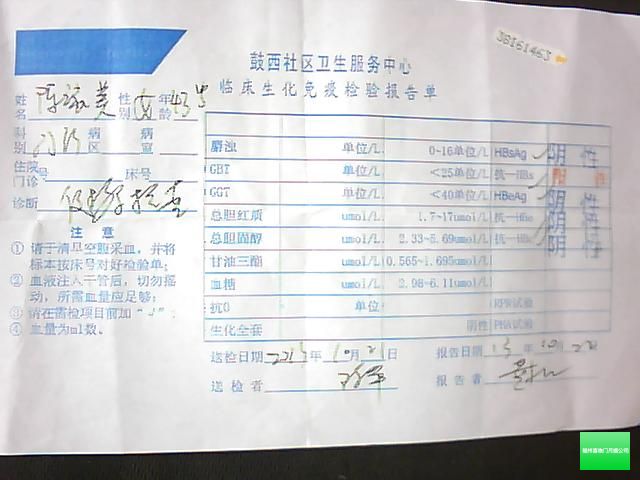 38161463
鼓西社区卫生服务中心
临床生化免疫检验报告单
姓名 性别 女 年龄 43岁
科别 门诊 病区 病室
住院号 门诊 床号
诊断
注意
① 请于清早空腹采血,并将标本按床号对好检验单;
② 血液注入干管后,切勿摇动,所需血量应足够;
③ 请在需检项目前加"√";
④ 血量为ml数。
麝浊 单位/L 0-16单位/L HBsAg 阴性
GBT 单位/L <25单位/L 抗—HBs 阳性
GGT 单位/L <40单位/L HBeAg 阴性
总胆红质 umol/L 1.7-17umol/L 抗—HBe 阴性
总胆固醇 umol/L 2.33-5.69umol/L 抗—HBc 阴性
甘油三酯 umol/L 0.565-1.695umol/L
血糖 umol/L 2.98-6.11umol/L
抗O 单位 RPR试验
生化全套 阴性
送检日期 2013年10月21日 报告日期 13年10月22
送检者 报告者